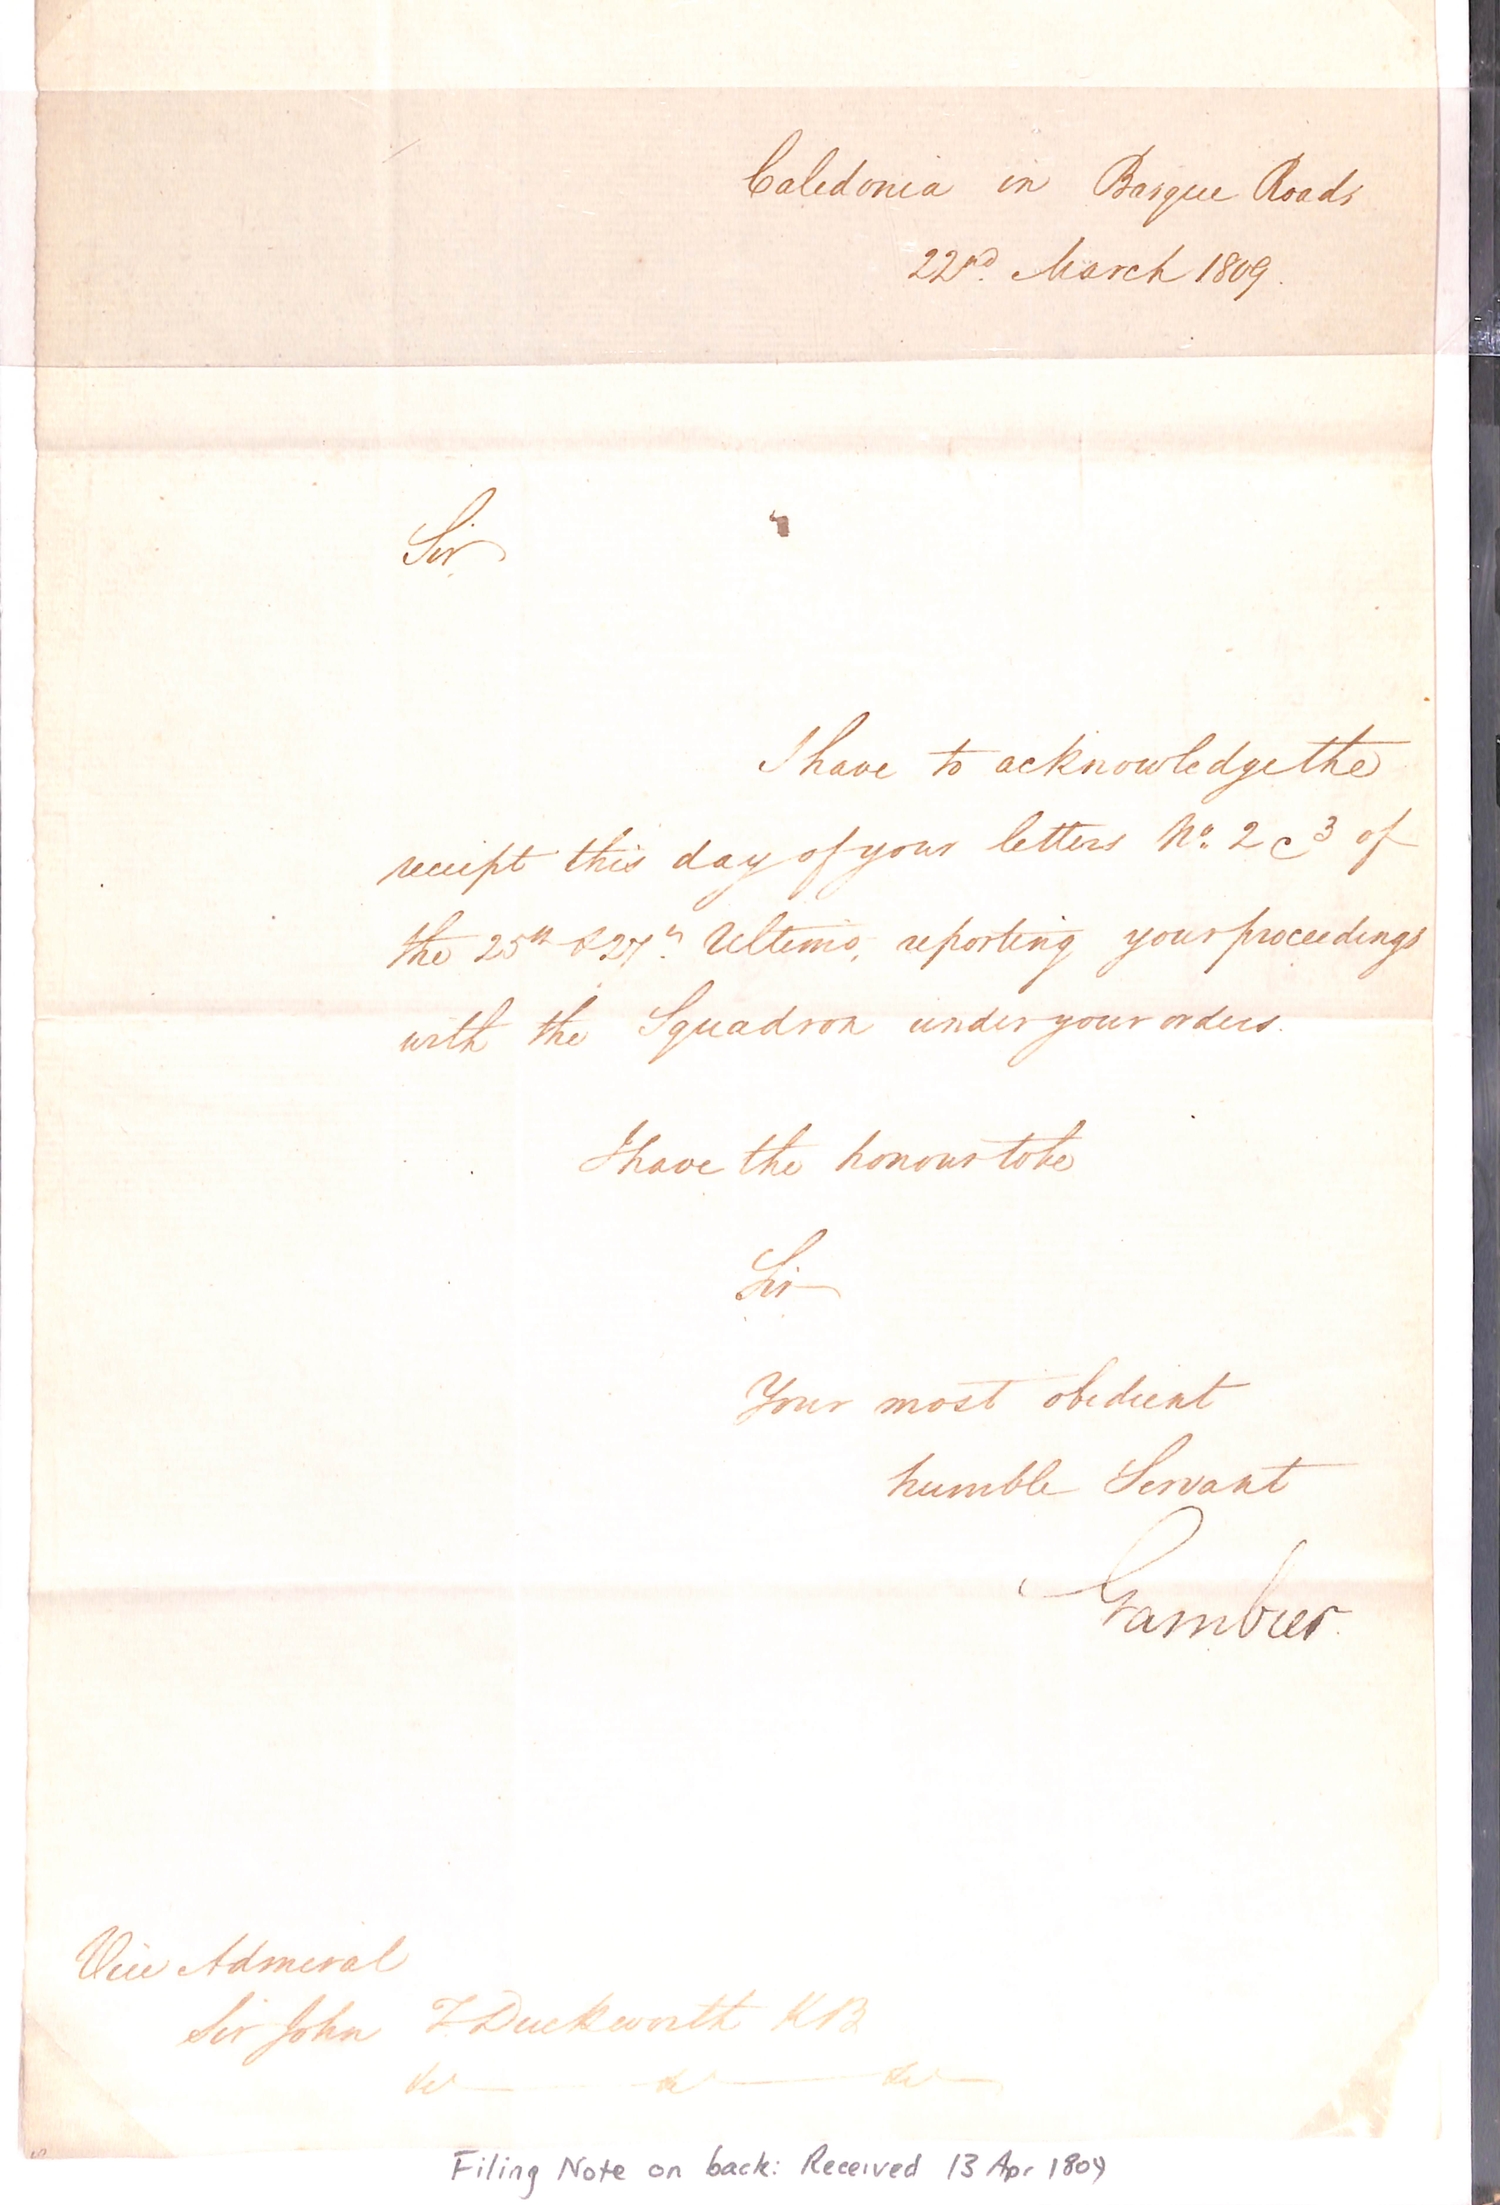 Caledonia in Basque Roads
22nd March 1809.
Sir
I have to acknowledge the
receipt this day of your letters No. 2 & 3 of
the 25th & 27th Ultimo, reporting your proceedings
with the Squadron under your orders.
I have the honour to be
Sir
Your most obedient
humble Servant
Gambier.
Vice Admiral
Sir John T Duckworth KB
&c — &c — &c —
Filing Note on back: Received 13 Apr 1809